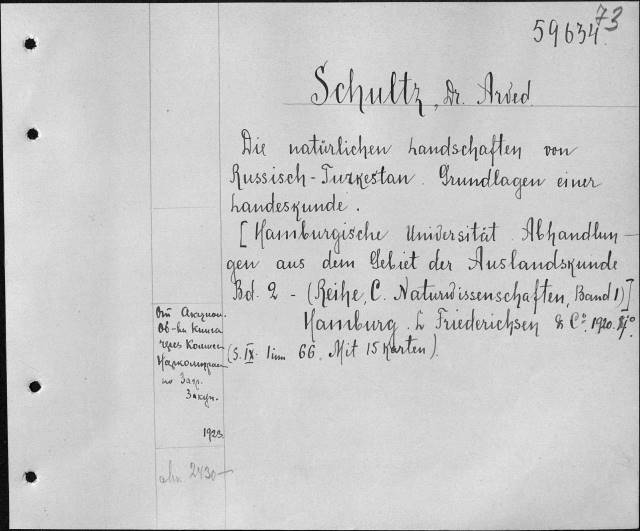 59634
73
Schultz, Dr. Arved.
Die natürlichen Landschaften von
Russisch-Turkestan. Grundlagen einer
Landeskunde.
[Hamburgische Universität. Abhandlun-
gen aus dem Gebiet der Auslandskunde
Bd. 2 - (Reihe, C. Naturwissenschaften, Band 1)]
Hamburg. L Friederichsen & Cº. 1920.
(S. IX. 1 66. Mit 15 Karten).
От Акцион.
Об-ва Книга
через Комис.
по Загр.
Закуп.
1923.
2430-